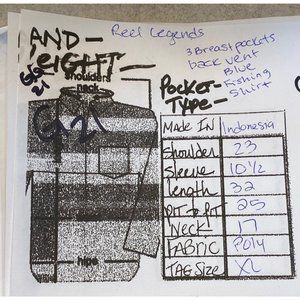 AND- Reel Legends
3 Breast pockets
back vent
Blue
Fishing
Shirt
shoulders
neck
Pocket-
TYPE-
G21
MADE IN Indonesia
Shoulder 23
Sleeve 10 1/2
length 32
PIT to PIT 25
Neck 17
FABRIC Poly
TAG Size XL
hips